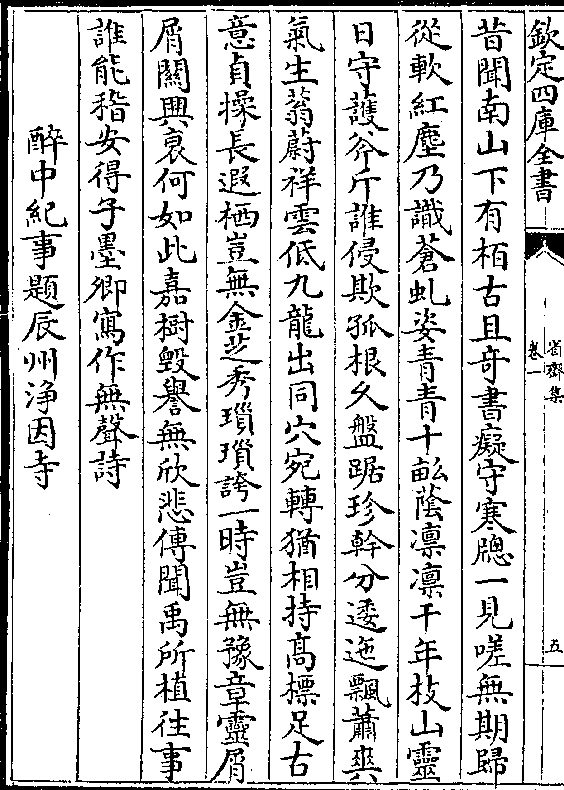 欽定四庫全書
省齋集
卷一
五
昔聞南山下有栢古且奇書癡守寒牕一見嗟無期歸
從軟紅塵乃識蒼虬姿青青十畝蔭凛凛千年枝山靈
日守䕶斧斤誰侵欺孤根久盤踞珍幹分逶迤飄蕭爽
氣生蓊蔚祥雲低九龍出同穴宛轉猶相持髙標足古
意貞操長遐栖豈無金芝秀瑣瑣誇一時豈無豫章靈屑
屑闗興衰何如此嘉樹毁譽無欣悲傳聞禹所植往事
誰能稽安得子墨卿寫作無聲詩
醉中紀事題辰州淨因寺